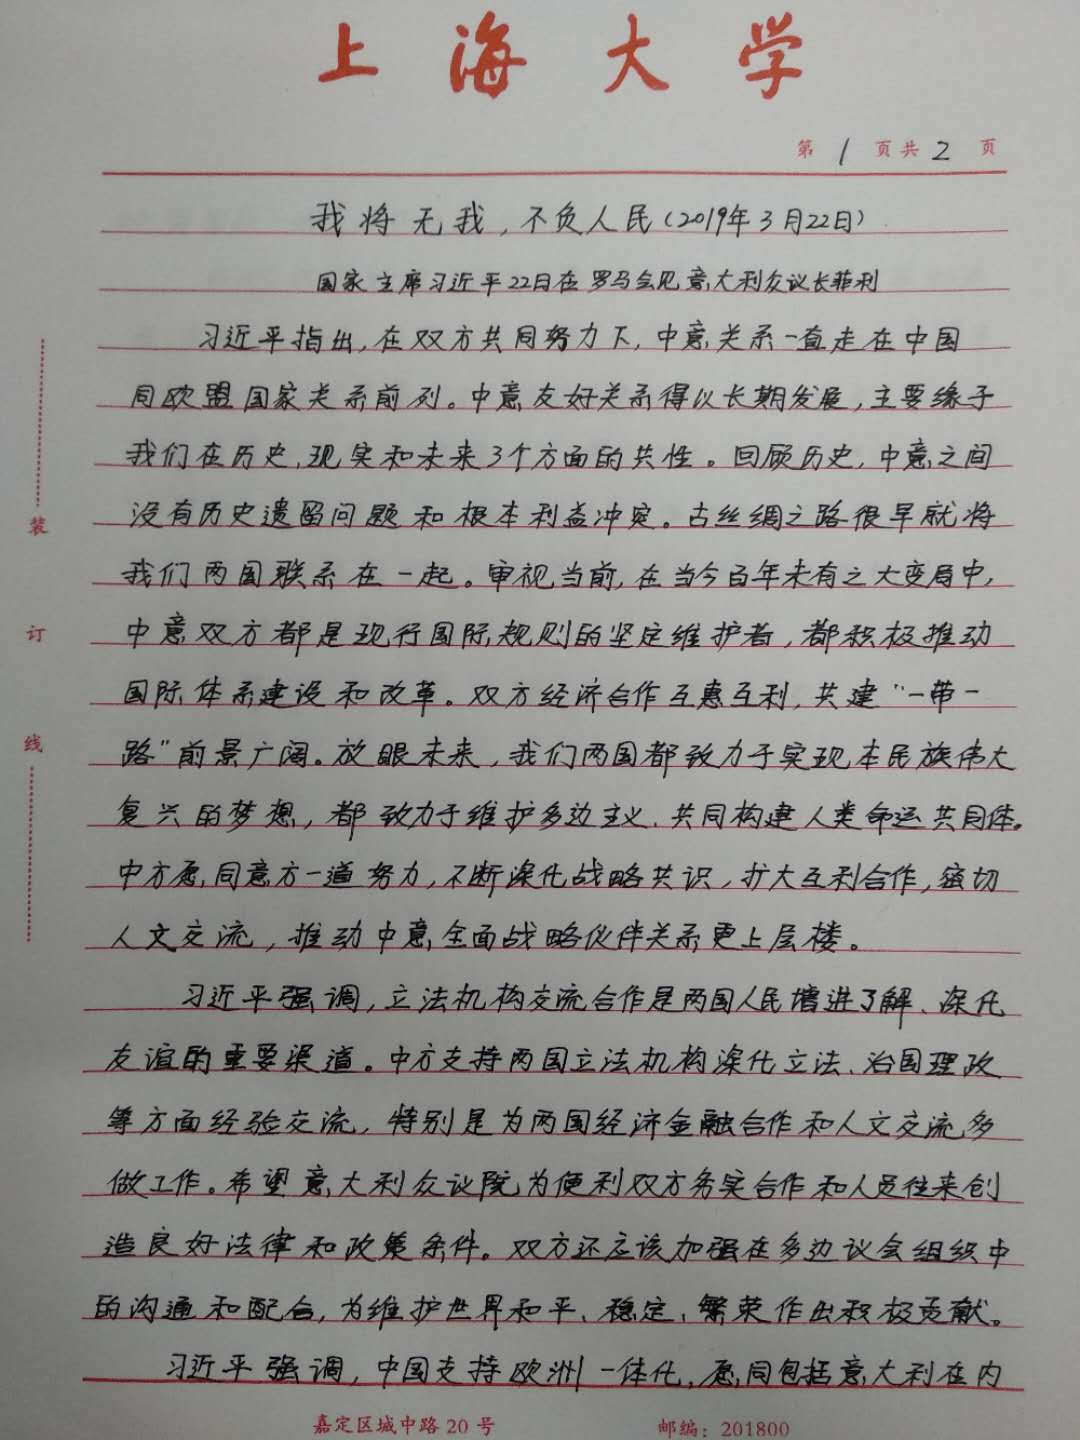 上海大学
第 1 页共 2 页
我将无我，不负人民（2019年3月22日）
国家主席习近平22日在罗马会见意大利众议长菲利
习近平指出，在双方共同努力下，中意关系一直走在中国
同欧盟国家关系前列。中意友好关系得以长期发展，主要缘于
我们在历史、现实和未来3个方面的共性。回顾历史，中意之间
没有历史遗留问题和根本利益冲突。古丝绸之路很早就将
我们两国联系在一起。审视当前，在当今百年未有之大变局中，
中意双方都是现行国际规则的坚定维护者，都积极推动
国际体系建设和改革。双方经济合作互惠互利，共建“一带一
路”前景广阔。放眼未来，我们两国都致力于实现本民族伟大
复兴的梦想，都致力于维护多边主义、共同构建人类命运共同体。
中方愿同意方一道努力，不断深化战略共识，扩大互利合作，密切
人文交流，推动中意全面战略伙伴关系更上层楼。
习近平强调，立法机构交流合作是两国人民增进了解、深化
友谊的重要渠道。中方支持两国立法机构深化立法、治国理政
等方面经验交流，特别是为两国经济金融合作和人文交流多
做工作。希望意大利众议院为便利双方务实合作和人员往来创
造良好法律和政策条件。双方还应该加强在多边议会组织中
的沟通和配合，为维护世界和平、稳定、繁荣作出积极贡献。
习近平强调，中国支持欧洲一体化，愿同包括意大利在内
装
订
线
嘉定区城中路 20 号 邮编：201800